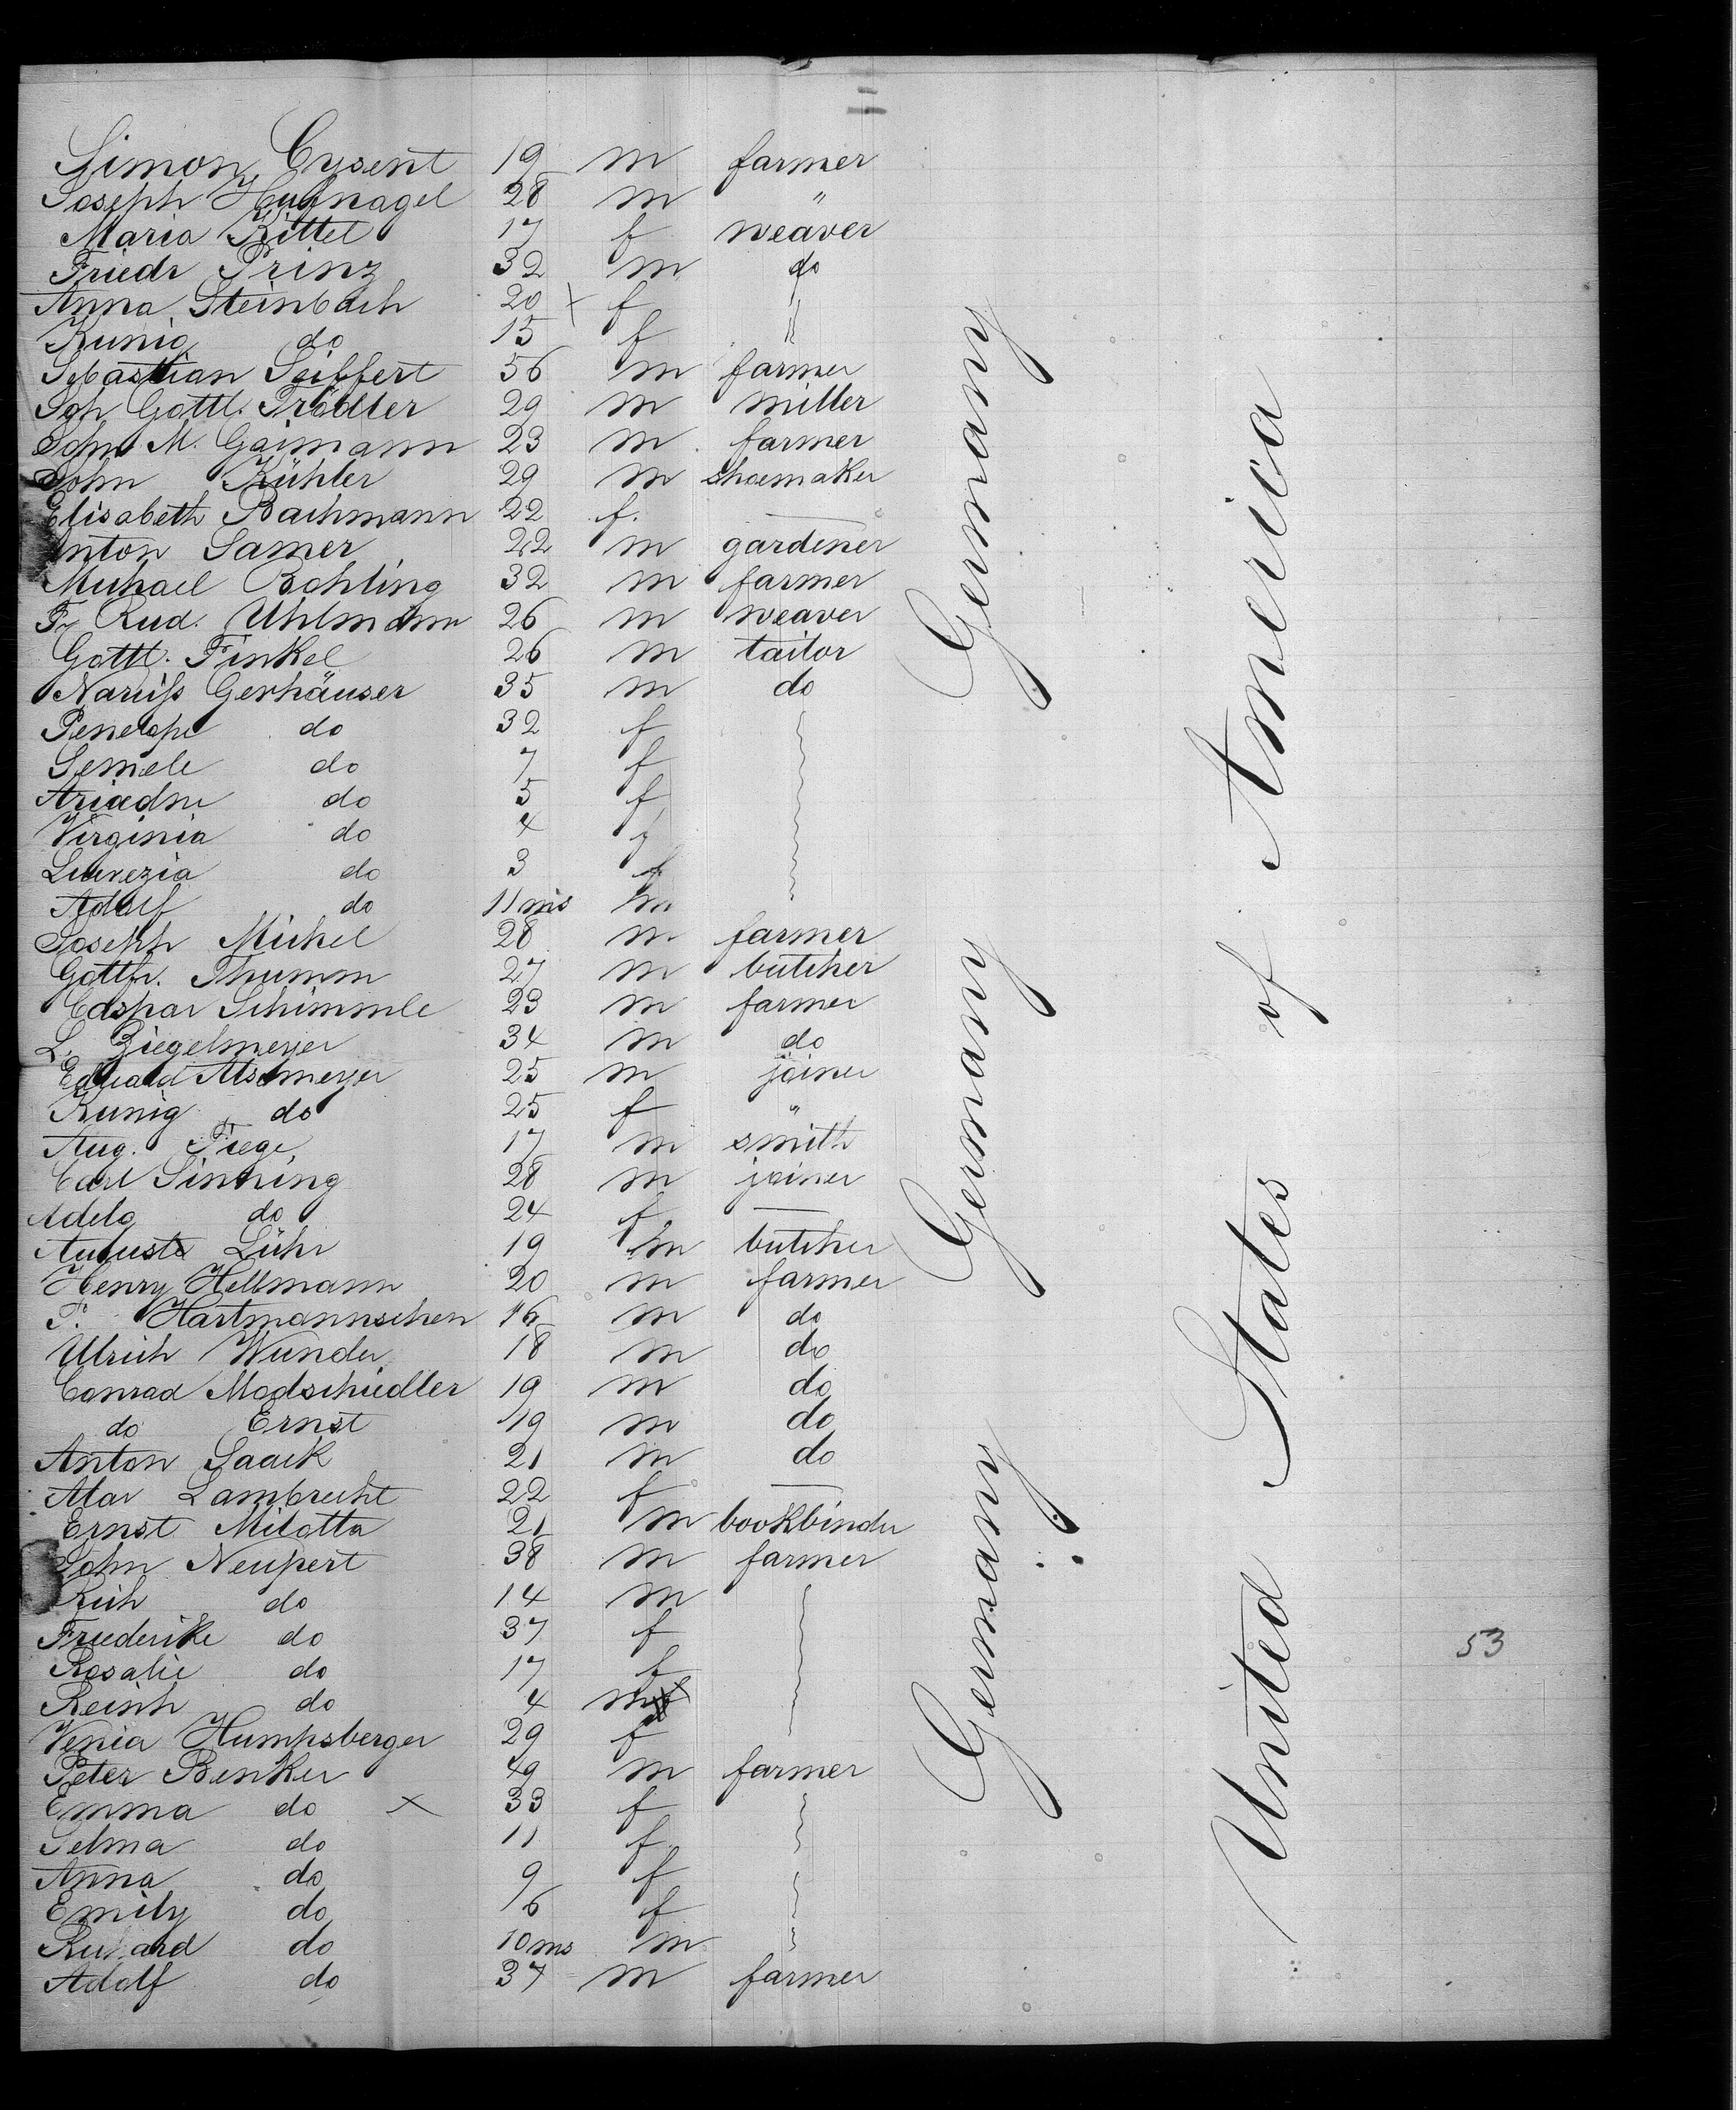 Simon Cysent 19 m farmer
Joseph Hufnagel 28 m "
Maria Kittel 17 f weaver
Friedr Prinz 32 m do
Anna Steinbach 20 x f "
Kunig do 15 f "
Sebastian Seiffert 56 m farmer
Joh Gottl. Trödler 29 m miller
John M. Gaimann 23 m farmer
John Kühler 29 m shoemaker
Elisabeth Bachmann 22 f. —
Anton Samer 22 m gardener
Michael Bohling 32 m farmer
Fr Rud. Uhlmann 26 m weaver
Gottl. Finkel 26 m tailor
Narciss Gerhäuser 35 m do
Penelope do 32 f
Semele do 7 f
Ariadne do 5 f
Virginia do 4 f
Lucrezia do 3 f
Adolf do 11 ms m
Joseph Michel 28 m farmer
Gottfr. Thumm 27 m butcher
Caspar Schimmle 23 m farmer
L. Ziegelmeyer 34 m do
Eduard Alsemeyer 25 m joiner
Kunig do 25 f "
Aug. Fiege 17 m smith
Carl Sinning 28 m joiner
Adela do 24 f —
August Lühr 19 m butcher
Henry Hellmann 20 m farmer
F. Hartmannschen 16 m do
Ulrich Wunder 18 m do
Conrad Modschiedler 19 m do
do Ernst 19 m do
Anton Saack 21 m do
Mar Lambrecht 22 f —
Ernst Milotta 21 m bookbinder
John Neupert 38 m farmer
Rich do 14 m
Friederike do 37 f
Rosalie do 17 f
Reinh do 4 m
Venia Humpsberger 29 f
Peter Benker 49 m farmer
Emma do x 33 f
Selma do 11 f
Anna do 9 f
Emily do 6 f
Richard do 10 ms m
Adolf do 37 m farmer
Germany Germany Germany
United States of America
53